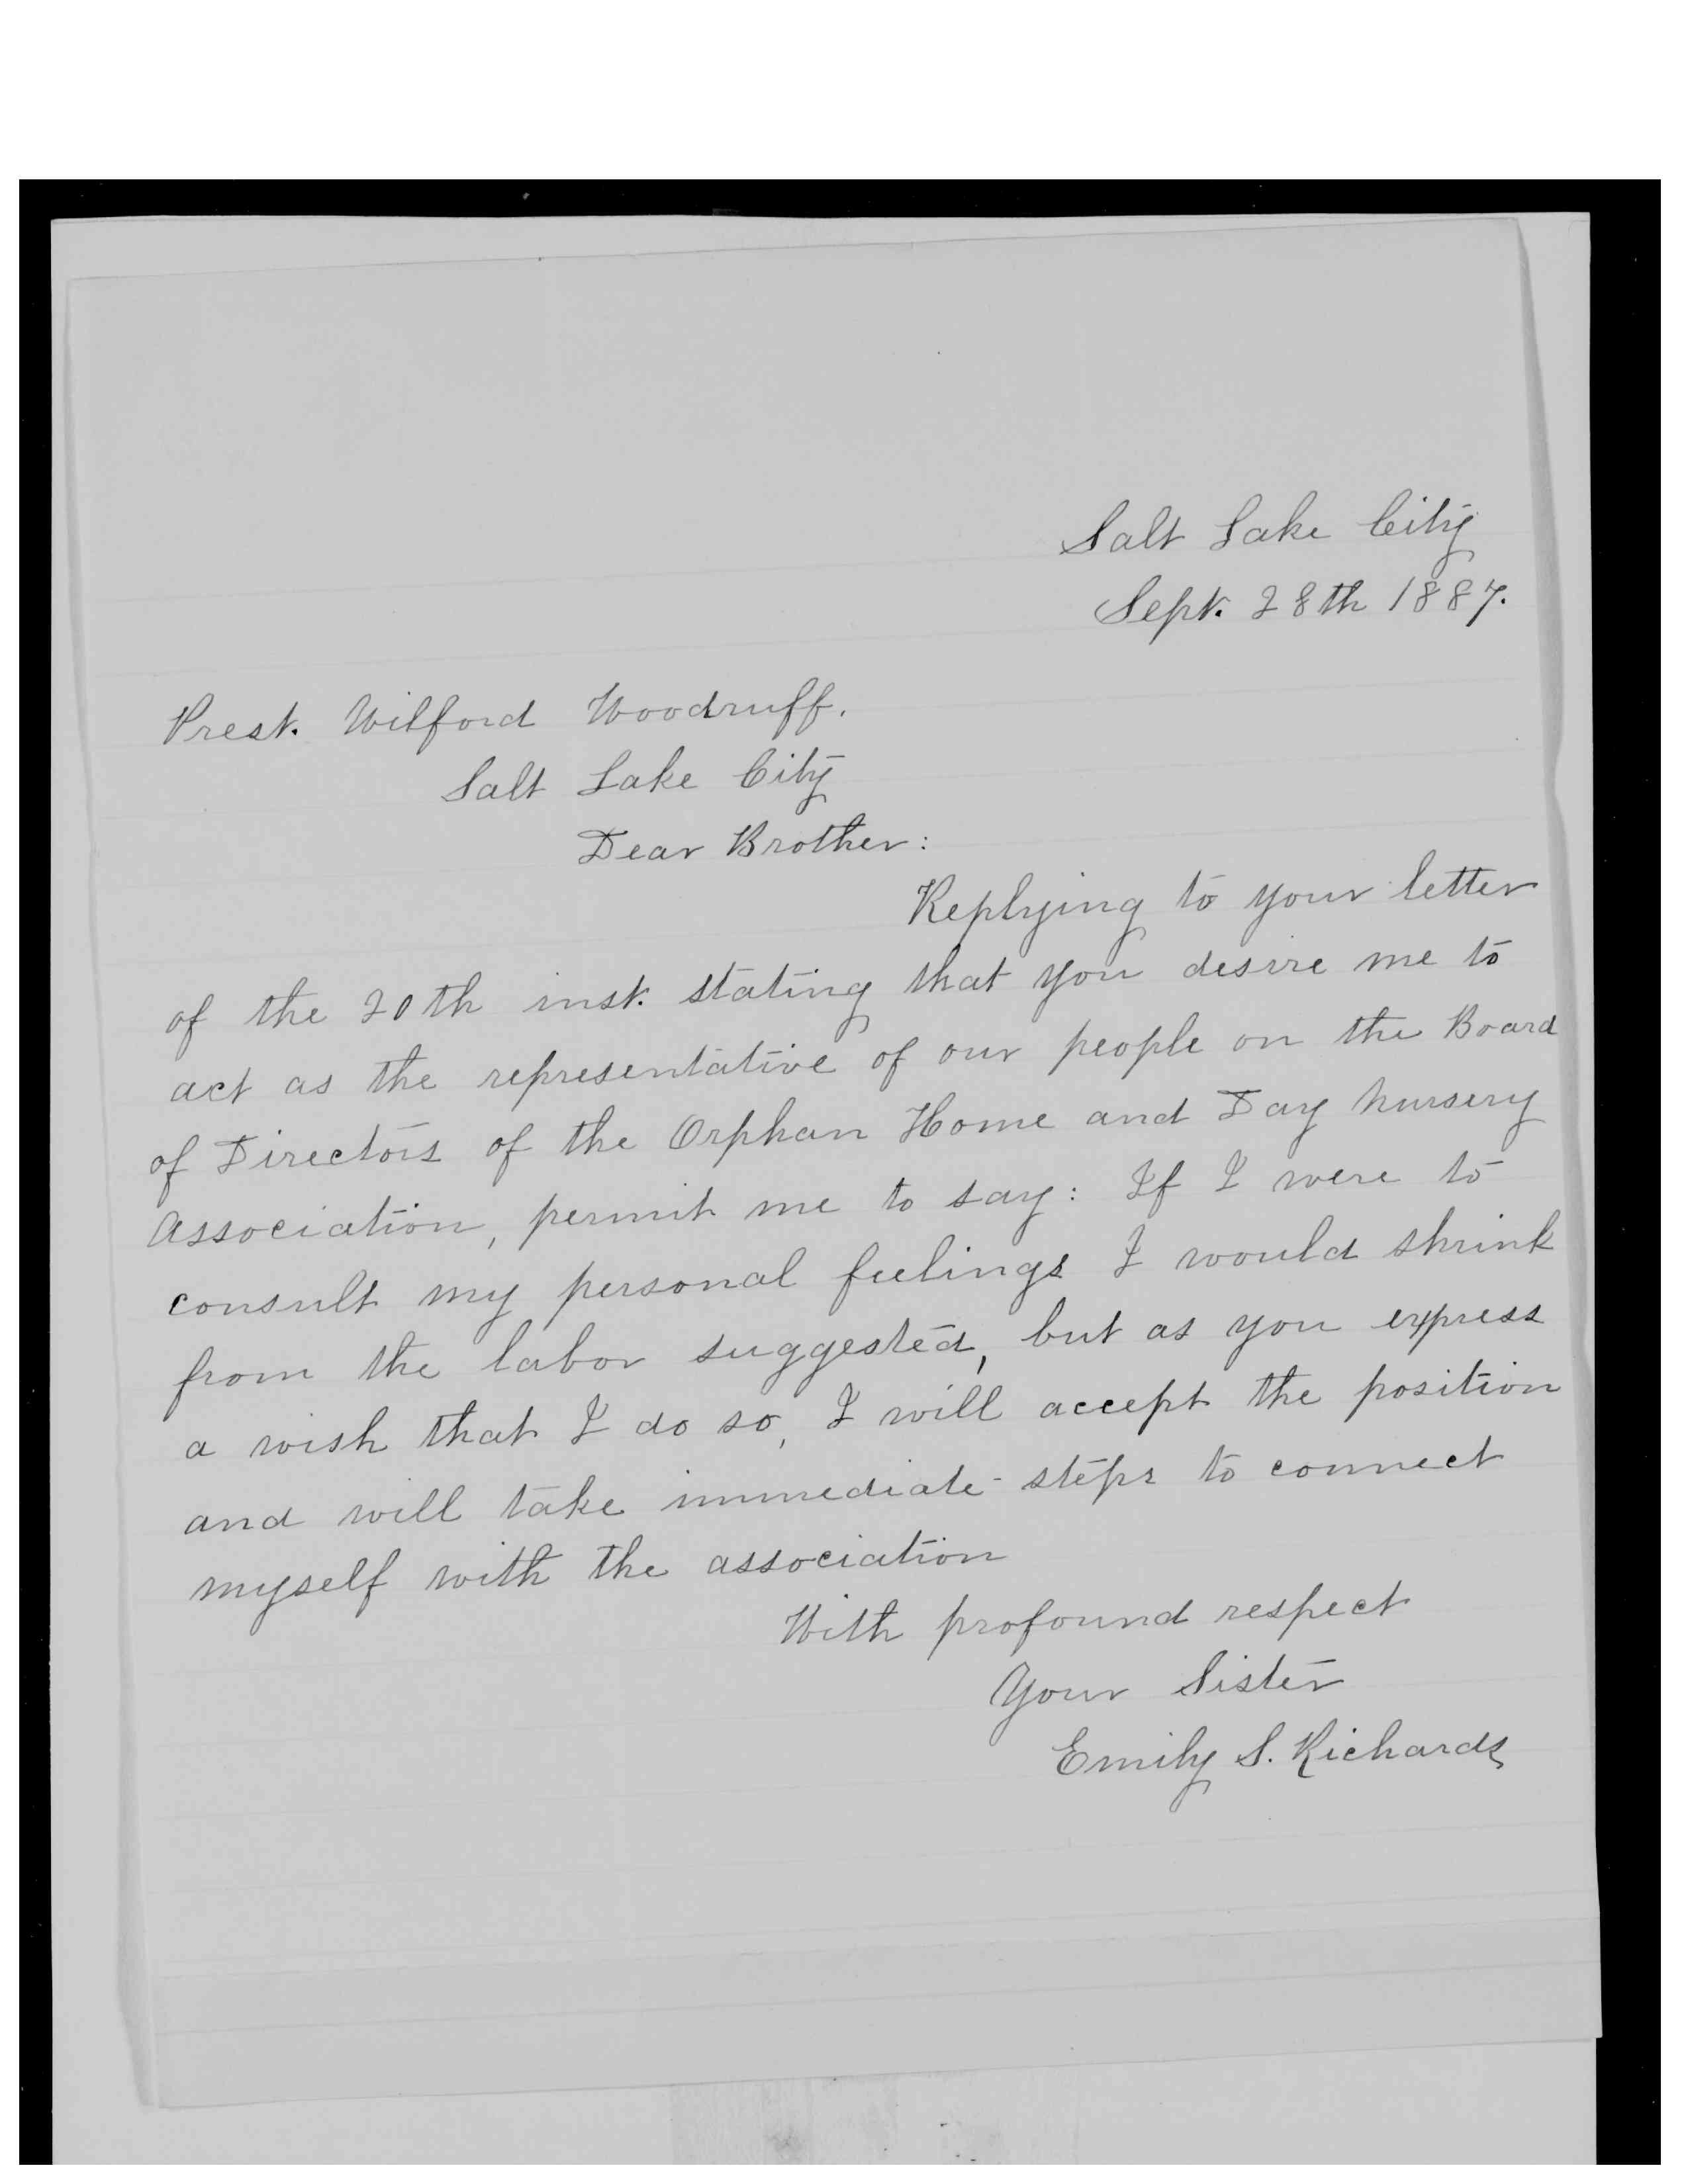 Salt Lake City
Sept. 28th 1887.
Prest. Wilford Woodruff.
Salt Lake City
Dear Brother:
Replying to your letter
of the 20th inst. stating that you desire me to
act as the representative of our people on the Board
of Directors of the Orphan Home and Day Nursery
Association, permit me to say: If I were to
consult my personal feelings I would shrink
from the labor suggested, but as you express
a wish that I do so, I will accept the position
and will take immediate steps to connect
myself with the association
With profound respect
Your Sister
Emily S. Richards